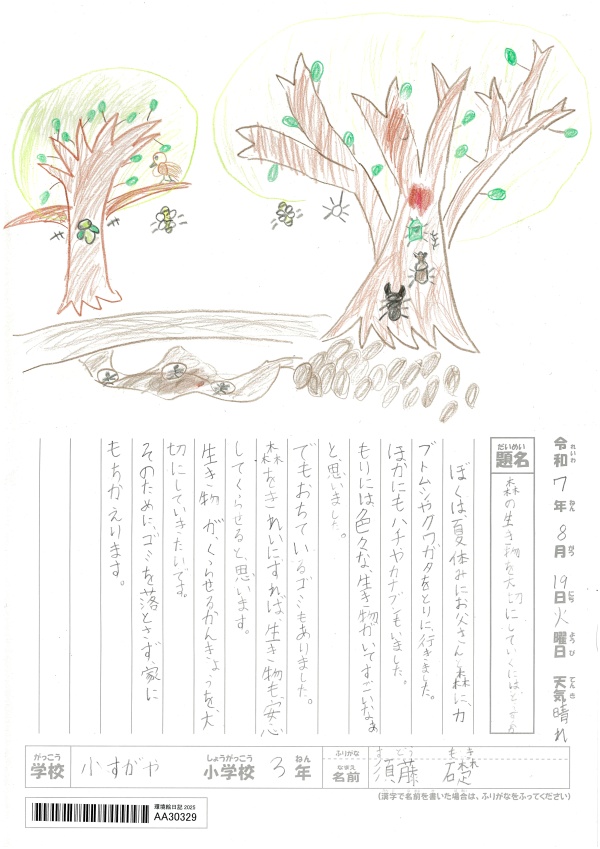 令和7年8月19日火曜日 天気晴れ
れいわ ねん がつ にち ようび てんき
だいめい
題名
森の生き物を大切にしていくにはどうするか
ぼくは、夏休みにお父さんと森に、カ
ブトムシやクワガタをとりに、行きました。
ほかにもハチやカナブンもいました。
もりには、色々な、生き物がいてすごいなぁ
と、思いました。
でもおちているゴミもありました。
森をきれいにすれば、生き物も、安心
してくらせると、思います。
生き物が、くらせるかんきょうを大
切にしていきたいです。
そのために、ゴミを落とさず、家に
もちかえります。
がっこう
学校
小すがや
しょうがっこう ねん
小学校 3年
ふりがな
なまえ
名前
すどう
須藤 礎
(漢字で名前を書いた場合は、ふりがなをふってください)
環境絵日記 2025
AA30329